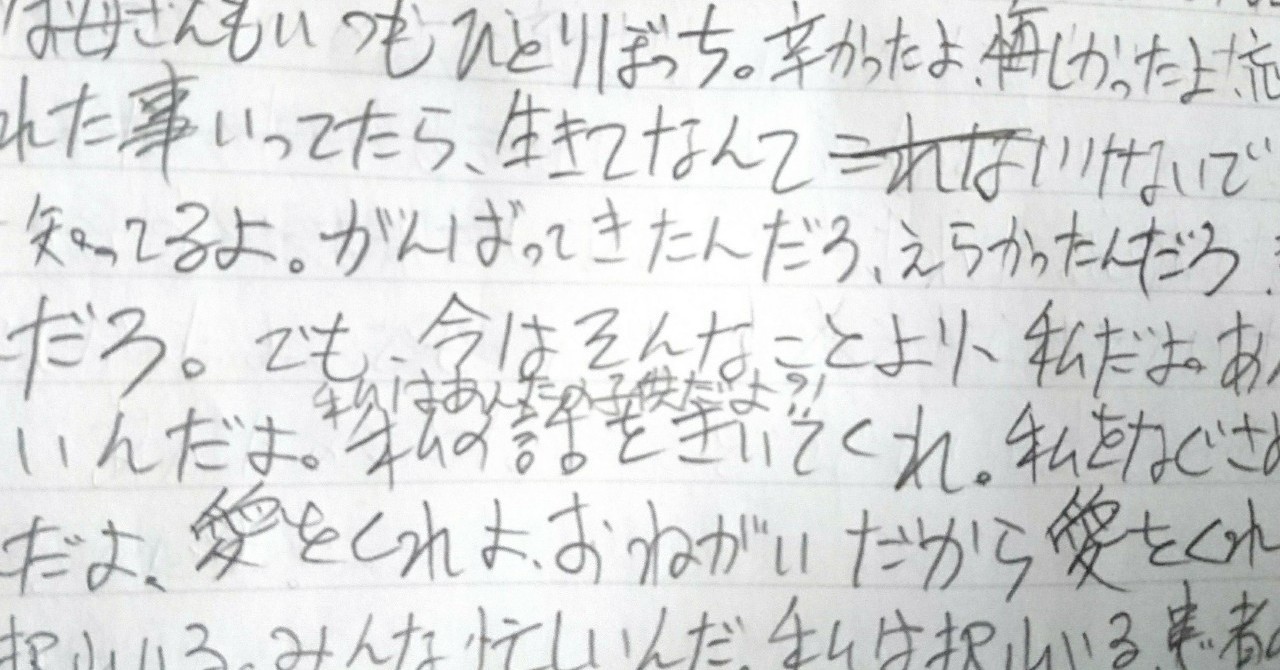 お母さんもいつもひとりぼっち。辛かったよ、悔しかったよ、忘
れた事いってたら、生きてなんてこればいけないで
知ってるよ。がんばってきたんだろ、えらかったんだろ
だろ。でも、今はそんなことより、私だよ。あん
私はあんたの子供だよ?!
いんだよ。私の話をきいてくれ。私をなぐさめ
だよ、愛をくれよ、おねがいだから愛をくれ
沢山いる。みんな忙しいんだ。私は沢山いる患者の